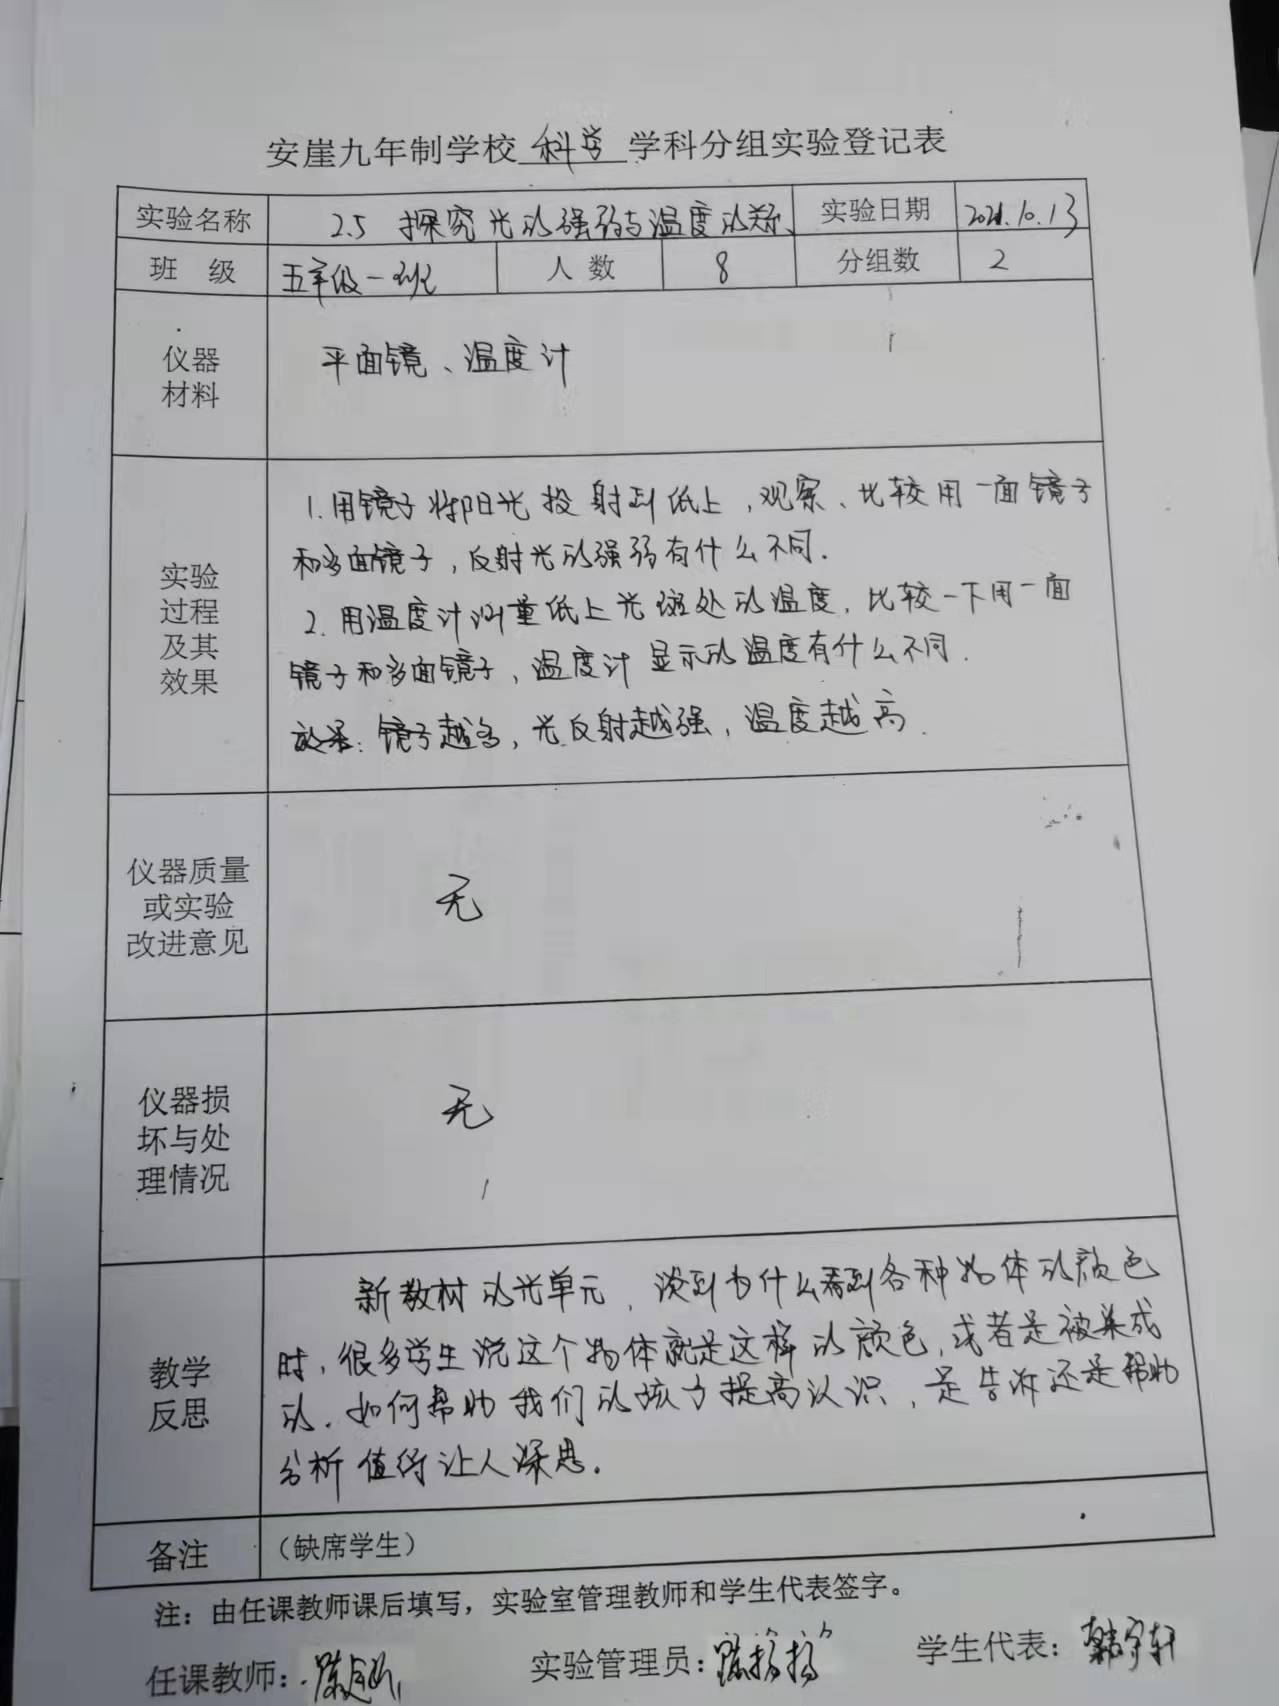 安崖九年制学校 科学 学科分组实验登记表
实验名称 2.5 探究光的强弱与温度的关系 实验日期 2021.10.13
班 级 五年级一班 人数 8 分组数 2
仪器
材料
平面镜、温度计
实验
过程
及其
效果
1.用镜子将阳光投射到纸上,观察、比较用一面镜子
和多面镜子,反射光的强弱有什么不同.
2.用温度计测量纸上光斑处的温度,比较一下用一面
镜子和多面镜子,温度计显示的温度有什么不同.
效果:镜子越多,光反射越强,温度越高.
仪器质量
或实验
改进意见
无
仪器损
坏与处
理情况
无
教学
反思
新教材的光单元,谈到为什么看到各种物体的颜色
时,很多学生说这个物体就是这样的颜色,或者是被染成
的.如何帮助我们的孩子提高认识,是告诉还是帮助
分析值得让人深思.
备注 (缺席学生)
注:由任课教师课后填写,实验室管理教师和学生代表签字。
任课教师: 实验管理员: 学生代表:韩宇轩